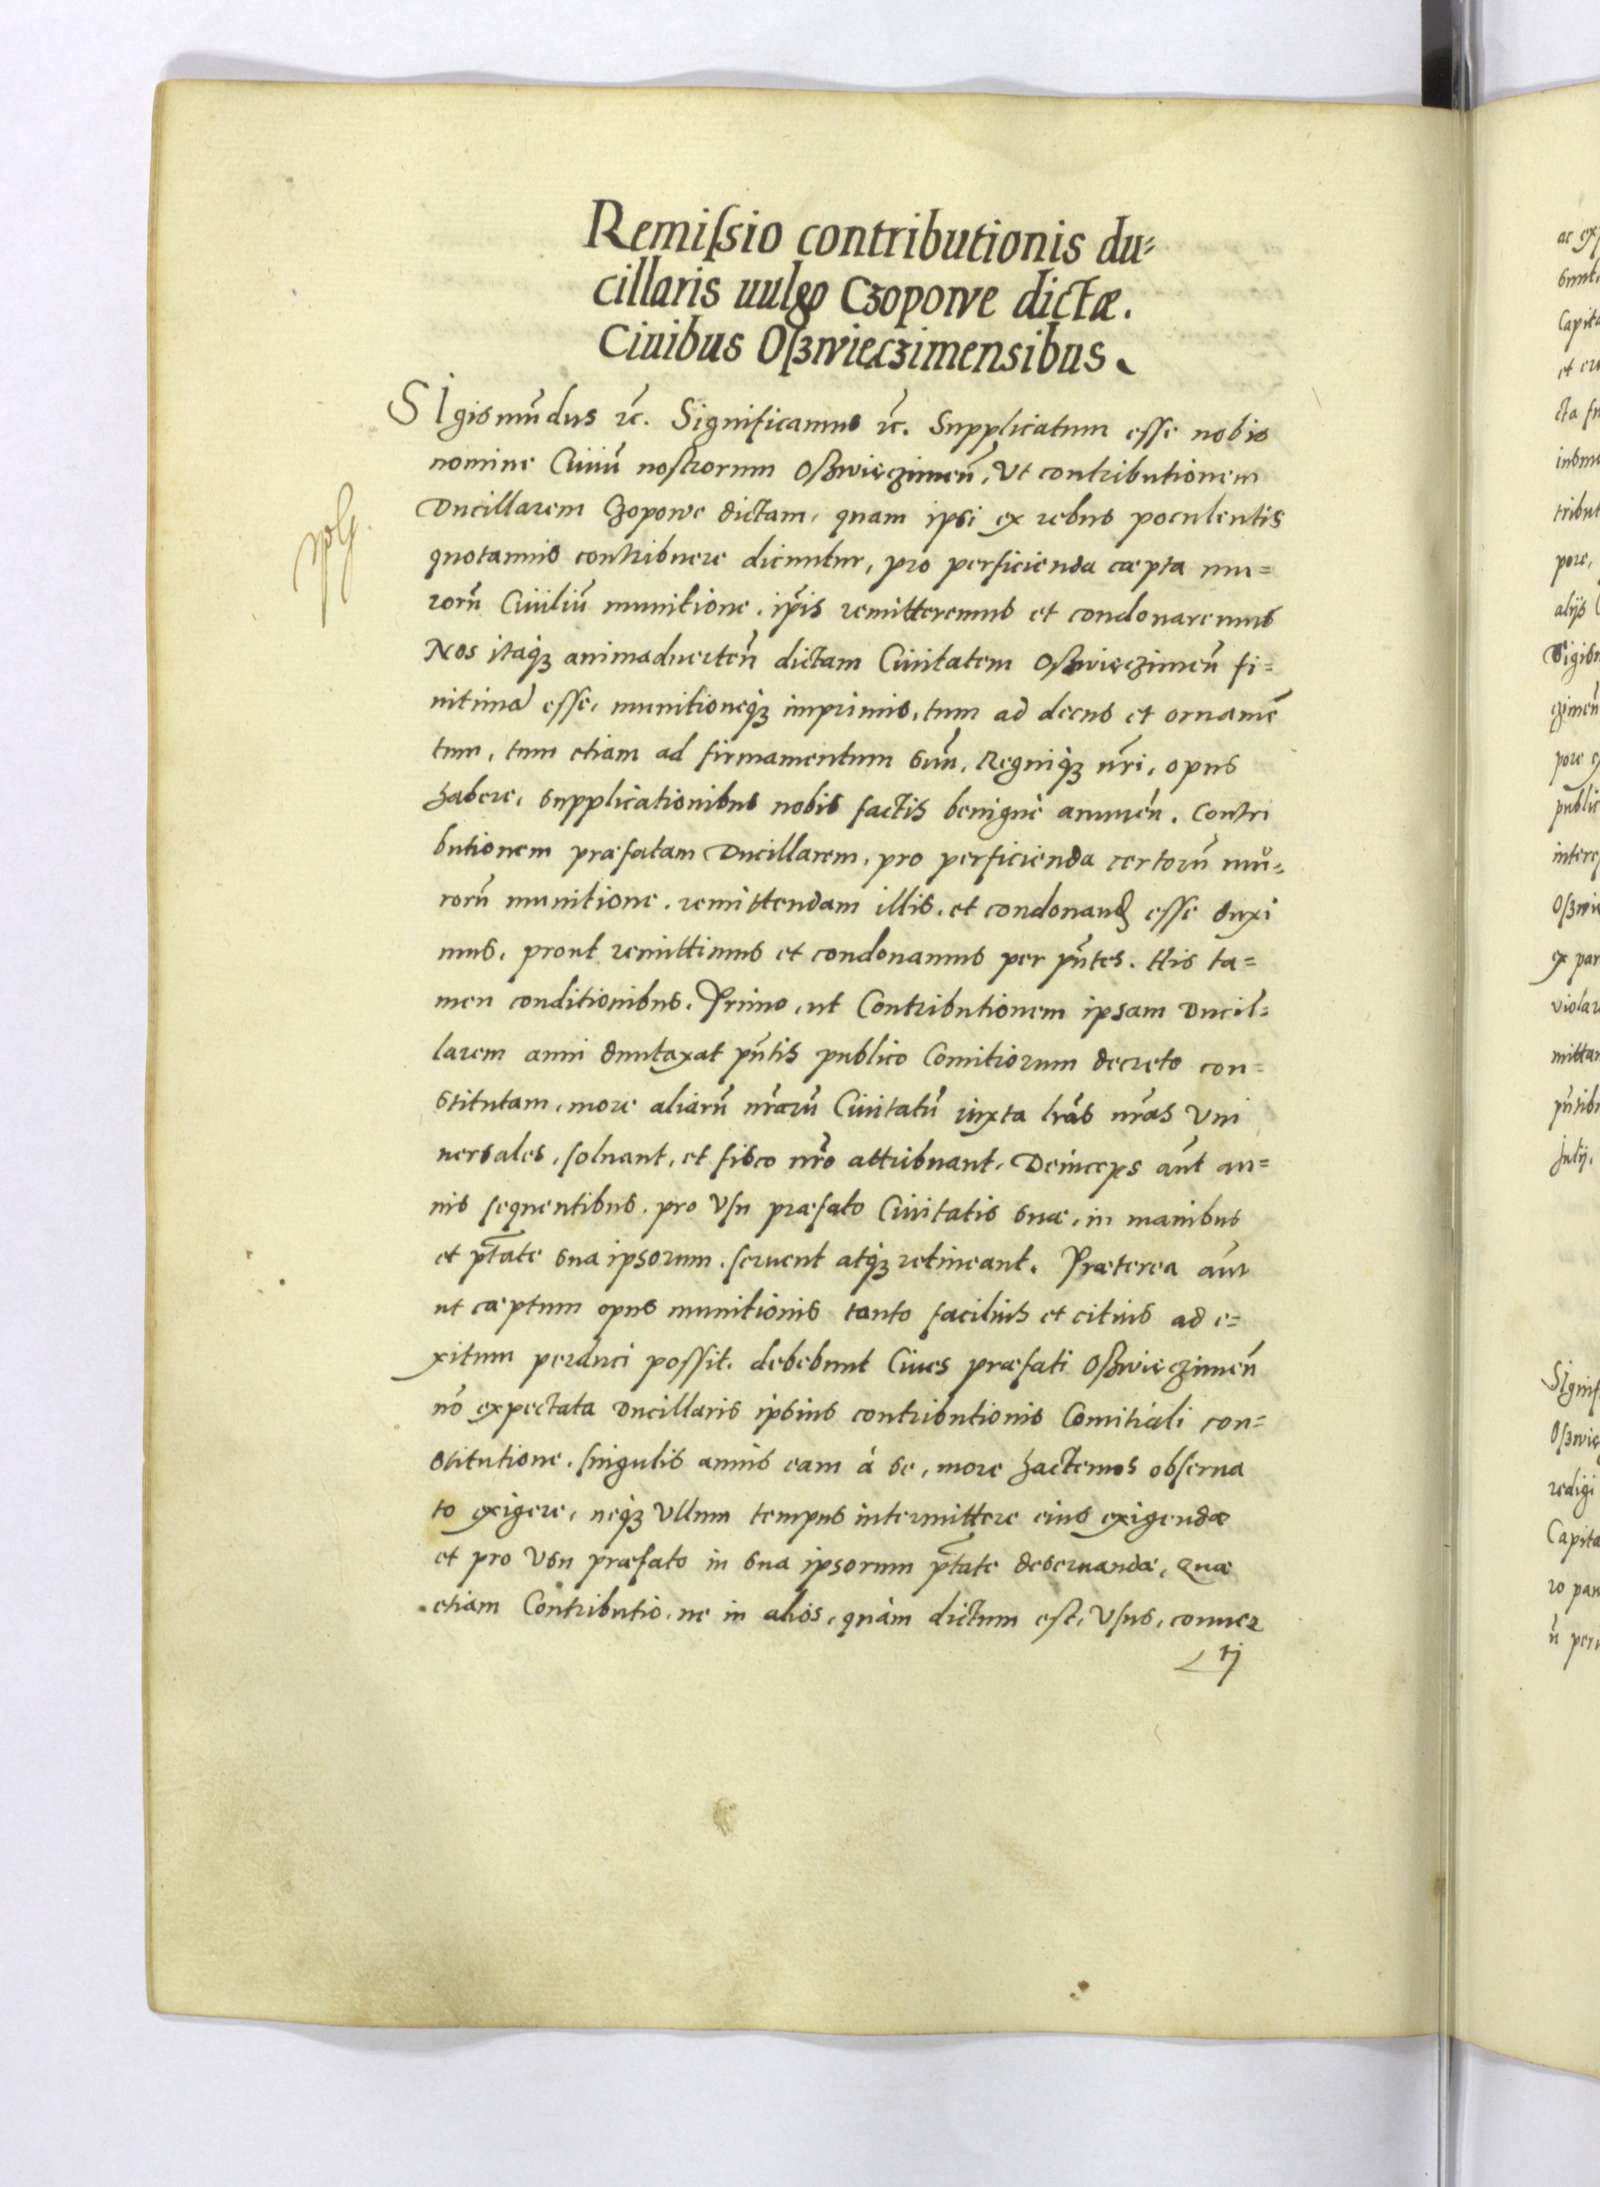 Remiſsio contributionis du⸗
cillaris uulgo Czopowe dictæ.
Ciuibus Oſzwieczimensibus.
SIgismūdus ꝛc. Significamus ꝛc. Supplicatum esse nobis
nomine Ciuiū nostrorum Oſzwieczimen̄, Vt contributionem
Ducillarem Czopowe dictam, quam ipsi ex rebus poculentis
quotannis contribuere dicuntur, pro perficienda cæpta mu=
rorū Ciuiliū munitione, ip̄is remitteremus et condonaremus
Nos itaqꝫ animaduerten̄ dictam Ciuitatem Oſzwieczimen̄ fi=
nitimā esse, munitioneqꝫ imprimis, tum ad decus et ornamē
tum, tum etiam ad firmamentum suū, Regniqꝫ nr̄i, opus
habere, supplicationibus nobis factis benignè annuen̄. Contri
butionem præfatam Ducillarem, pro perficienda certorū mu=
rorū munitione, remittendam illis, et condonandā esse duxi
mus, prout remittimus et condonamus per pn̄tes. His ta=
men conditionibus. Primo, ut Contributionem ipsam Ducil=
larem anni duntaxat pn̄tis publico Comitiorum decreto con=
stitutam, more aliarū nr̄arū Ciuitatū iuxta lr̄as nr̄as Vni
uersales, soluant, et fisco nr̄o attribuant. Deinceps aūt an=
nis sequentibus, pro Vsu præfato Ciuitatis suæ, in manibus
et ptāte sua ipsorum, seruent atqꝫ retineant. Præterea aūt
ut cæptum opus munitionis tanto facilius et citius ad e=
xitum perduci possit, debebunt Ciues præfati Oſzwieczimen̄
nō expectata Ducillaris ipsius contributionis Comitiali con=
stitutione, singulis annis eam à se, more hactenus obserua
to exigere, neqꝫ Vllum tempus intermittere eius exigendæ
et pro Vsu præfato in sua ipsorum ptāte deseruandæ, Quæ
etiam Contributio, ne in alios, quàm dictum est, Vsus, conuer
ti